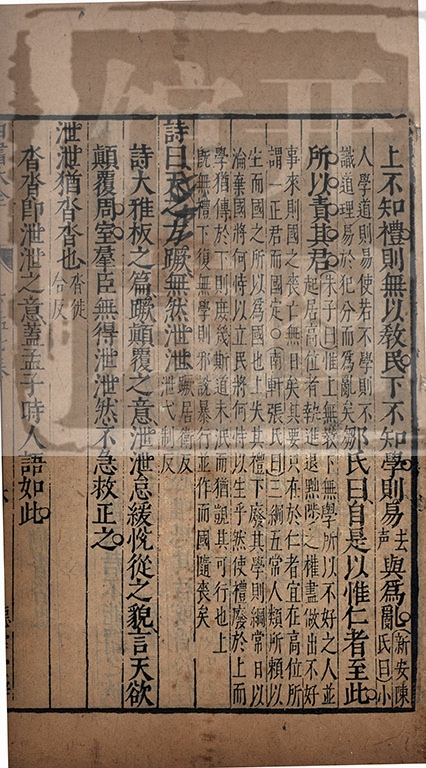 上不知禮則無以教民下不知學則易去聲與為亂新安陳氏曰小
人學道則易使若不學則不
識道理易於犯分而為亂矣鄒氏曰自是以惟仁者至此
所以責其君朱子曰惟上無教下無學所以不好之人並
起居高位者執進退黜陟之權盡做出不好
事來則國之喪亡無日矣其要只在於仁者宜在高位所
謂一正君而國定○南軒張氏曰三綱五常人類所賴以
生而國之所以爲國也上失其禮下廢其學則綱常日以
淪棄國將何恃以立民將何恃以生乎然使禮廢於上而
學猶傳於下則庶幾斯道未泯而猶覬其可行也上
既無禮下復無學則邪說暴行並作而國隨喪矣
詩曰天之方蹶無然泄泄蹶居衛反
泄弋制反
詩大雅板之篇蹶顛覆之意泄泄怠緩悅從之貌言天欲
顛覆周室羣臣無得泄泄然不急救正之
泄泄猶沓沓也沓徒
合反
沓沓即泄泄之意蓋孟子時人語如此